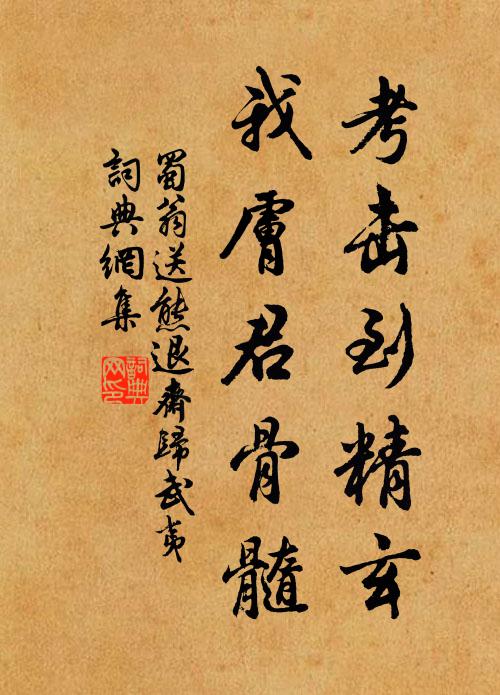 考击到精玄
我膚君骨髓
蜀翁送熊退齋歸武夷
詞典網集
詞典
网印